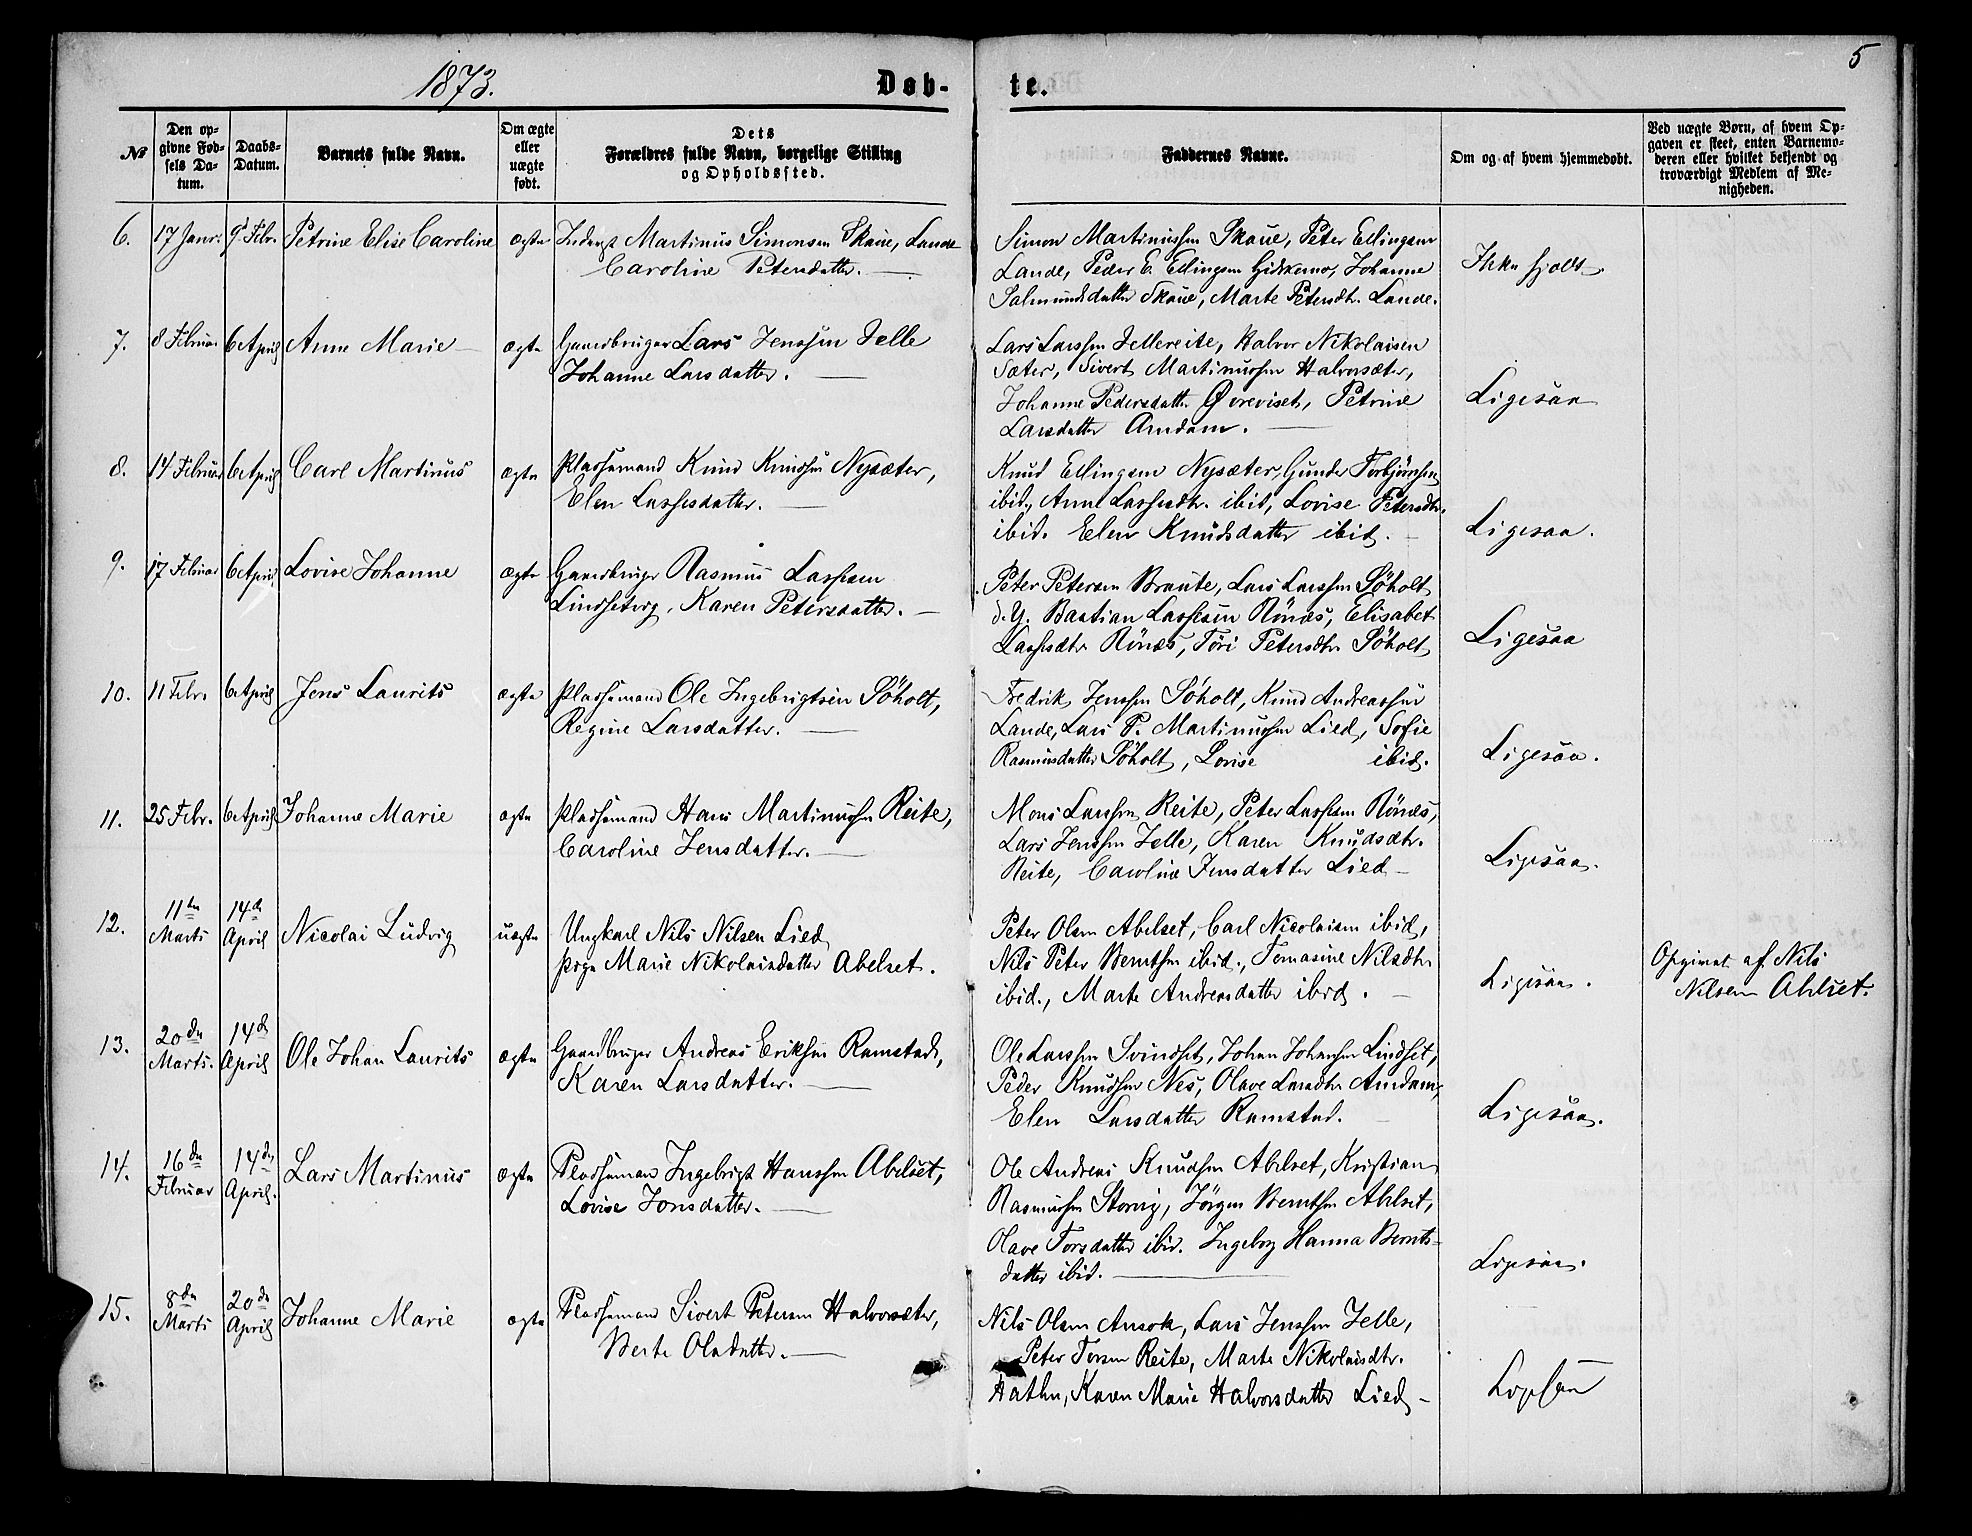 5
1873.
Døb-
te.
№
Den op-
givne Fød-
sels Da-
tum.
Daabs-
Datum.
Barnets fulde Navn.
Om ægte
eller
uægte
født.
Dets
Forældres fulde Navn, borgelige Stilling
og Opholdssted.
Faddernes Navne.
Om og af hvem hjemmedøbt.
Ved uægte Børn, af hvem Op-
gaven er skeet, enten Barnemo-
deren eller hvilket bekjendt og
troværdigt Medlem af Me-
nigheden.
6.
17 Janr.
9 Febr.
Petrine Elise Caroline
ægte
Martinus Simonsen Skaue, Lande
Caroline Petersdatter.
Simon Martinussen Skaue, Peter Ellingsen
Lande, Peder E. Ellingsen Johanne
Salmundsdatter Skaue, Marte Petersdtr. Lande.
Ikke hjdbt.
7.
8 Februar
6 April
Anne Marie
ægte
Gaardbruger Lars Jenssen Jelle
Johanne Larsdatter.
Lars Larssen Jellereite, Halvor Nikolaisen
Sæter, Sivert Martinussen Halvorsæter,
Johanne Pedersdattr. Øvreviset, Petrine
Larsdatter Amdam.
Ligesaa
8.
14 Februar
6 April
Carl Martinus
ægte
Pladsemand Knud Knudsen Nysæter,
Elen Lassesdatter.
Knud Ellingsen Nysæter, Gunder Torbjörnsen
ibid., Anne Lassesdtr. ibid, Lovise Petersdtr.
ibid. Elen Knudsdatter ibid.
Ligesaa.
9.
17 Februar
6 April
Lovise Johanne
ægte
Gaardbruger Rasmus Lassesen
Lindseterg, Karen Petersdatter.
Peter Petersen Braute, Lars Larssen Søholt
d.y. Bastian Lassesen Rönæs, Elisabet
Lassesdtr Rönæs, Töri Petersdtr Søholt
Ligesaa
10.
11 Febr.
6 April
Jens Laurits
ægte
Pladsemand Ole Ingebrigtsen Søholt,
Regine Larsdatter.
Fredrik Jenssen Søholt, Knud Andreassen
Lande, Lars P. Martinussen Lied, Sofie
Rasmusdatter Søholt, Lovise ibid.
Ligesaa.
11.
25 Febr.
6 April
Johanne Marie
ægte
Pladsemand Hans Martinussen Reite,
Caroline Jensdatter.
Mons Larssen Reite, Peter Lassesen Rönæs,
Lars Jenssen Jelle, Karen Knudsdtr.
Reite, Caroline Jensdatter Lied
Ligesaa.
12.
11te
Marts
14de
April
Nicolai Ludvig
uægte
Ungkarl Nils Nilsen Lied
Pige Marie Nikolaisdatter Abelset.
Peter Olsen Abelset, Carl Nicolaisen ibid,
Nils Peter Berntsen ibid., Tomasine Nilsdtr
ibid., Marte Andreasdatter ibid.
Ligesaa.
Opgivet af Nils
Nilsen Abelset.
13.
20de
Marts.
14de
April
Ole Johan Laurits
ægte
Gaardbruger Andreas Eriksen Ramstad,
Karen Larsdatter.
Ole Larssen Svindset, Johan Johansen Lindset,
Peder Knudsen Nes, Olave Larsdtr Amdam,
Elen Larsdatter Ramstad.
Ligesaa.
14.
16de
Februar
14de
April.
Lars Martinus
ægte
Pladsemand Ingebrigt Hanssen Abelset,
Lovise Jonsdatter.
Ole Andreas Knudsen Abelset, Kristian
Rasmussen Storvig, Jörgen Berntsen Abelset,
Olave Torsdatter ibid. Ingeborg Hanna Bernts-
datter ibid.
Ligesaa.
15.
8de
Marts
20de
April
Johanne Marie
ægte
Pladsemand Sivert Petersen Halvorsæter,
Berte Olsdatter.
Nils Olsen Ansok, Lars Jenssen Jelle,
Peter Torsen Reite, Marte Nikolaisdtr.
Hatlen, Karen Marie Halvorsdatter Lied
Ligesaa